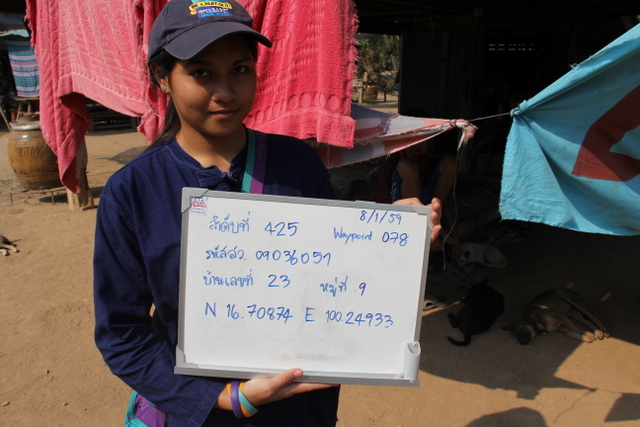 8/1/59
ลำดับที่ 425 Waypoint 078
รหัสสว. 09036051
บ้านเลขที่ 23 หมู่ที่ 9
N 16.70874 E 100.24933